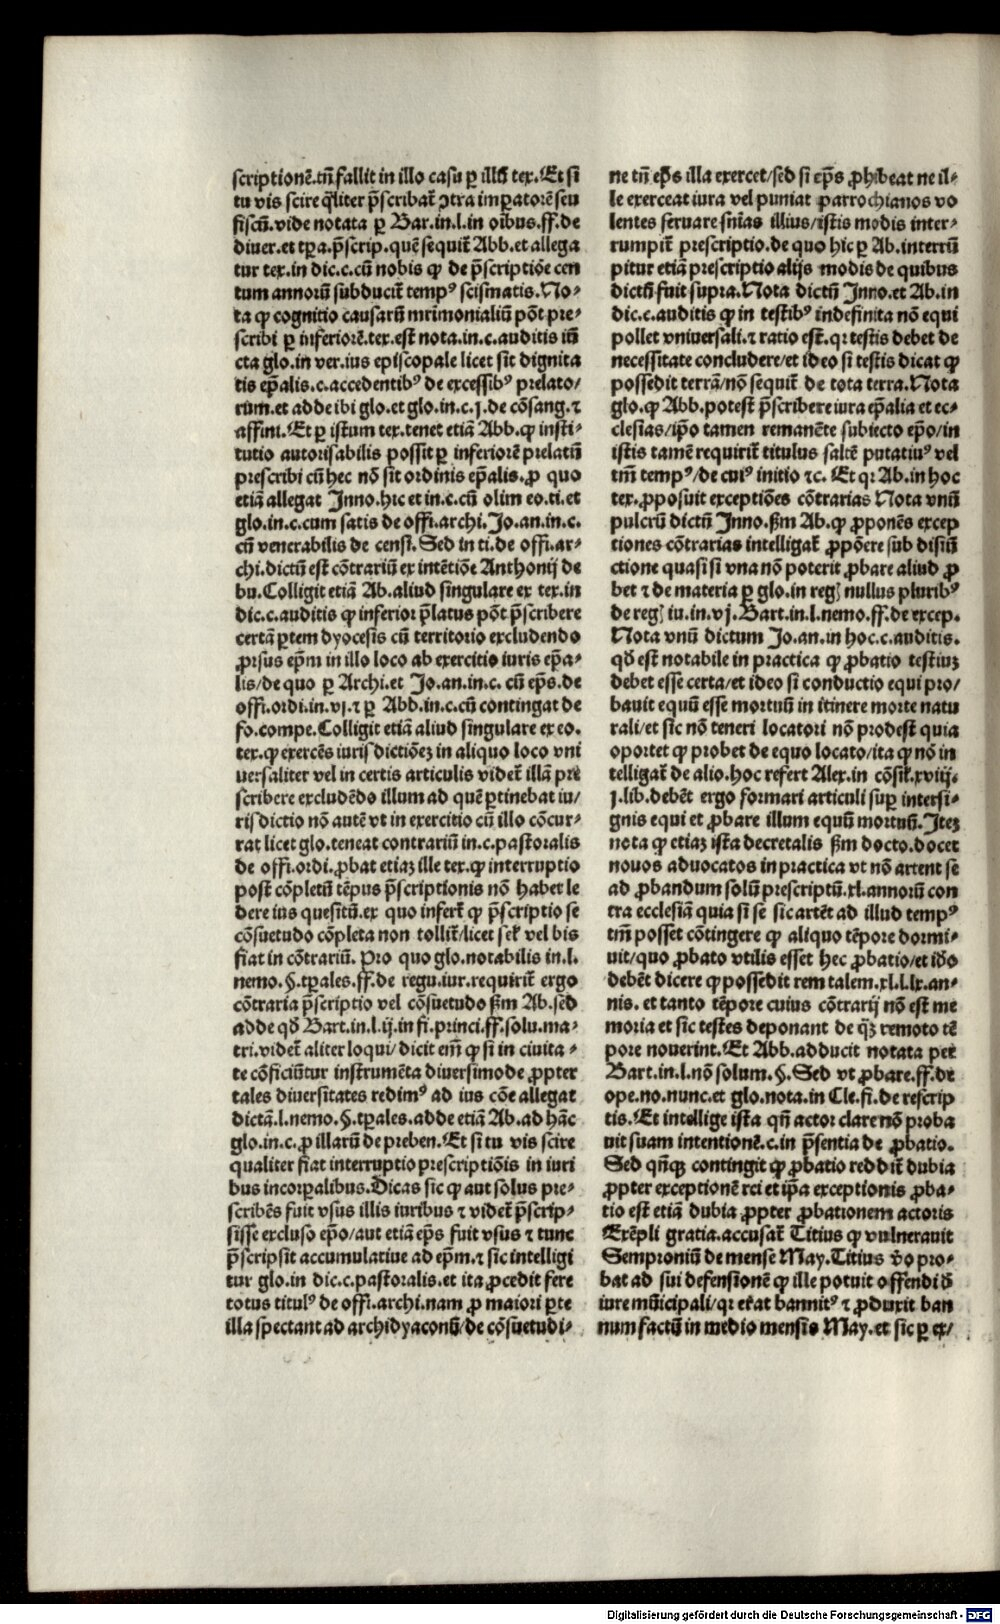 scriptionē.tm̄ fallit in illo casu ꝑ illū tex. Et si
tu vis scire q̄liter p̄scribat̄ ꝯtra imꝑatorē seu
fiscū. vide notata ꝑ Bar. in. l. in oībus. ff. de
diuer. et tꝑa. p̄scrip. quē sequit̄ Abb. et allega
tur tex. in dic. c. cū nobis ꝙ de p̄scriptiōe cen
tum annorū subducit̄ tempꝰ scismatis. No-
ta ꝙ cognitio causarū mr̄imonialiū pōt pre-
scribi ꝑ inferiorē. tex. est nota. in. c. auditis iū
cta glo. in ver. ius episcopale licet sit dignita
tis ep̄alis. c. accedentibꝰ de excessibꝰ prelato/
rum. et adde ibi glo. et glo. in. c. j. de cōsang. ⁊
affini. Et ꝑ istum tex. tenet etiā Abb. ꝙ insti-
tutio autorisabilis possit ꝑ inferiorē prelatū
prescribi cū hec nō sit ordinis ep̄alis. ꝓ quo
etiā allegat Inno. hic et in. c. cū olim eo. ti. et
glo. in. c. cum satis de offi. archi. Jo. an. in. c.
cū venerabilis de censi. Sed in ti. de offi. ar-
chi. dictū est cōtrariū ex intētiōe Anthonij de
bu. Colligit etiā Ab. aliud singulare ex tex. in
dic. c. auditis ꝙ inferior p̄latus pōt p̄scribere
certā ꝑtem dyocesis cū territorio excludendo
ꝓrsus ep̄m in illo loco ab exercitio iuris ep̄a-
lis/de quo ꝑ Archi. et Jo. an. in. c. cū ep̄s. de
offi. ordi. in. vj. ⁊ ꝑ Abb. in. c. cū contingat de
fo. compe. Colligit etiā aliud singulare ex eo.
tex. ꝙ exercēs iurisdictiōeꝫ in aliquo loco vni
uersaliter vel in certis articulis videt̄ illā pre
scribere excludēdo illum ad quē ꝑtinebat iu/
risdictio nō autē vt in exercitio cū illo cōcur-
rat licet glo. teneat contrariū in. c. pastoralis
de offi. ordi. ꝓbat etiaꝫ ille tex. ꝙ interruptio
post cōpletū tēpus p̄scriptionis nō habet le
dere ius quesitū. ex quo infert̄ ꝙ p̄scriptio se
cōsuetudo cōpleta non tollit̄/licet sel̄ vel bis
fiat in cōtrariū. Pro quo glo. notabilis in. l.
nemo. §. tꝑales. ff. de regu. iur. requirit̄ ergo
cōtraria p̄scriptio vel cōsuetudo ẜm Ab. sed
adde qd̄ Bart. in. l. ij. in fi. princi. ff. solu. ma-
tri. videt̄ aliter loqui/dicit em̄ ꝙ si in ciuita-
te cōficiūtur instrumēta diuersimode ꝓpter
tales diuersitates redimꝰ ad ius cōe allegat
dictā. l. nemo. §. tꝑales. adde etiā Ab. ad hāc
glo. in. c. ꝓ illarū de preben. Et si tu vis scire
qualiter fiat interruptio prescriptiōis in iuri
bus incorꝑalibus. Dicas sic ꝙ aut solus pre-
scribēs fuit vsus illis iuribus ⁊ videt̄ p̄scrip-
sisse excluso ep̄o/aut etiā ep̄s fuit vsus ⁊ tunc
p̄scripsit accumulatiue ad ep̄m. ⁊ sic intelligi
tur glo. in dic. c. pastoralis. et ita ꝓcedit fere
totus titulꝰ de offi. archi. nam ꝓ maiori ꝑte
illa spectant ad archidyaconū/de cōsuetudi-
ne tn̄ ep̄s illa exercet/sed si ep̄s ꝓhibeat ne il-
le exerceat iura vel puniat parrochianos vo
lentes seruare sn̄ias illius/istis modis inter-
rumpit̄ prescriptio. de quo hic ꝑ Ab. interrū
pitur etiā prescriptio alijs modis de quibus
dictū fuit supra. Nota dictū Inno. et Ab. in
dic. c. auditis ꝙ in testibꝰ indefinita nō equi
pollet vniuersali. ⁊ ratio est. qꝛ testis debet de
necessitate concludere/et ideo si testis dicat ꝙ
possedit terrā/nō sequit̄ de tota terra. Nota
glo. ꝙ Abb. potest p̄scribere iura ep̄alia et ec-
clesias/ip̄o tamen remanēte subiecto ep̄o/in
istis tamē requirit̄ titulus saltē putatiuꝰ vel
tm̄ tempꝰ/de cuiꝰ initio ⁊c. Et qꝛ Ab. in hoc
tex. ꝓposuit exceptiōes cōtrarias Nota vnū
pulcrū dictū Inno. ẜm Ab. ꝙ ꝓponēs excep
tiones cōtrarias intelligat̄ ꝓpōere sub disiū
ctione quasi si vna nō poterit ꝓbare aliud ꝓ
bet ⁊ de materia ꝑ glo. in regꝫ nullus pluribꝰ
de regꝫ iu. in. vj. Bart. in. l. nemo. ff. de excep.
Nota vnū dictum Jo. an. in hoc. c. auditis.
qd̄ est notabile in practica ꝙ ꝓbatio testiuꝫ
debet esse certa/et ideo si conductio equi pro/
bauit equū esse mortuū in itinere morte natu
rali/et sic nō teneri locatori nō prodest quia
oportet ꝙ probet de equo locato/ita ꝙ nō in
telligat̄ de alio. hoc refert Alex. in cōsil̄. xviij.
j. lib. debēt ergo formari articuli suꝑ intersi-
gnis equi et ꝓbare illum equū mortuū. Iteꝫ
nota ꝙ etiaꝫ ista decretalis ẜm docto. docet
nouos aduocatos in practica vt nō artent se
ad ꝓbandum solū prescriptū. xl. annorū con
tra ecclesiā quia si se sic artēt ad illud tempꝰ
tm̄ posset cōtingere ꝙ aliquo tēpore dormi-
uit/quo ꝓbato vtilis esset hec ꝓbatio/et iđo
debēt dicere ꝙ possedit rem talem. xl. l. lx. an-
nis. et tanto tēpore cuius cōtrarij nō est me
moria et sic testes deponant de qꝫ remoto tē
pore nouerint. Et Abb. adducit notata per
Bart. in. l. nō solum. §. Sed vt ꝓbare. ff. de
ope. no. nunc. et glo. nota. in Cle. fi. de rescrip
tis. Et intellige ista qn̄ actor clare nō proba
uit suam intentionē. c. in p̄sentia de ꝓbatio.
Sed qn̄qꝫ contingit ꝙ ꝓbatio reddit̄ dubia
ꝓpter exceptionē rei et ip̄a exceptionis ꝓba-
tio est etiā dubia ꝓpter ꝓbationem actoris
Exēpli gratia. accusat̄ Titius ꝙ vulnerauit
Semproniū de mense May. Titius v̄o pro-
bat ad sui defensionē ꝙ ille potuit offendi đ
iure mūicipali/qꝛ erat bannitꝰ ⁊ ꝓduxit ban
num factū in medio mensis May. et sic ꝑ ex/
Digitalisierung gefördert durch die Deutsche Forschungsgemeinschaft - DFG